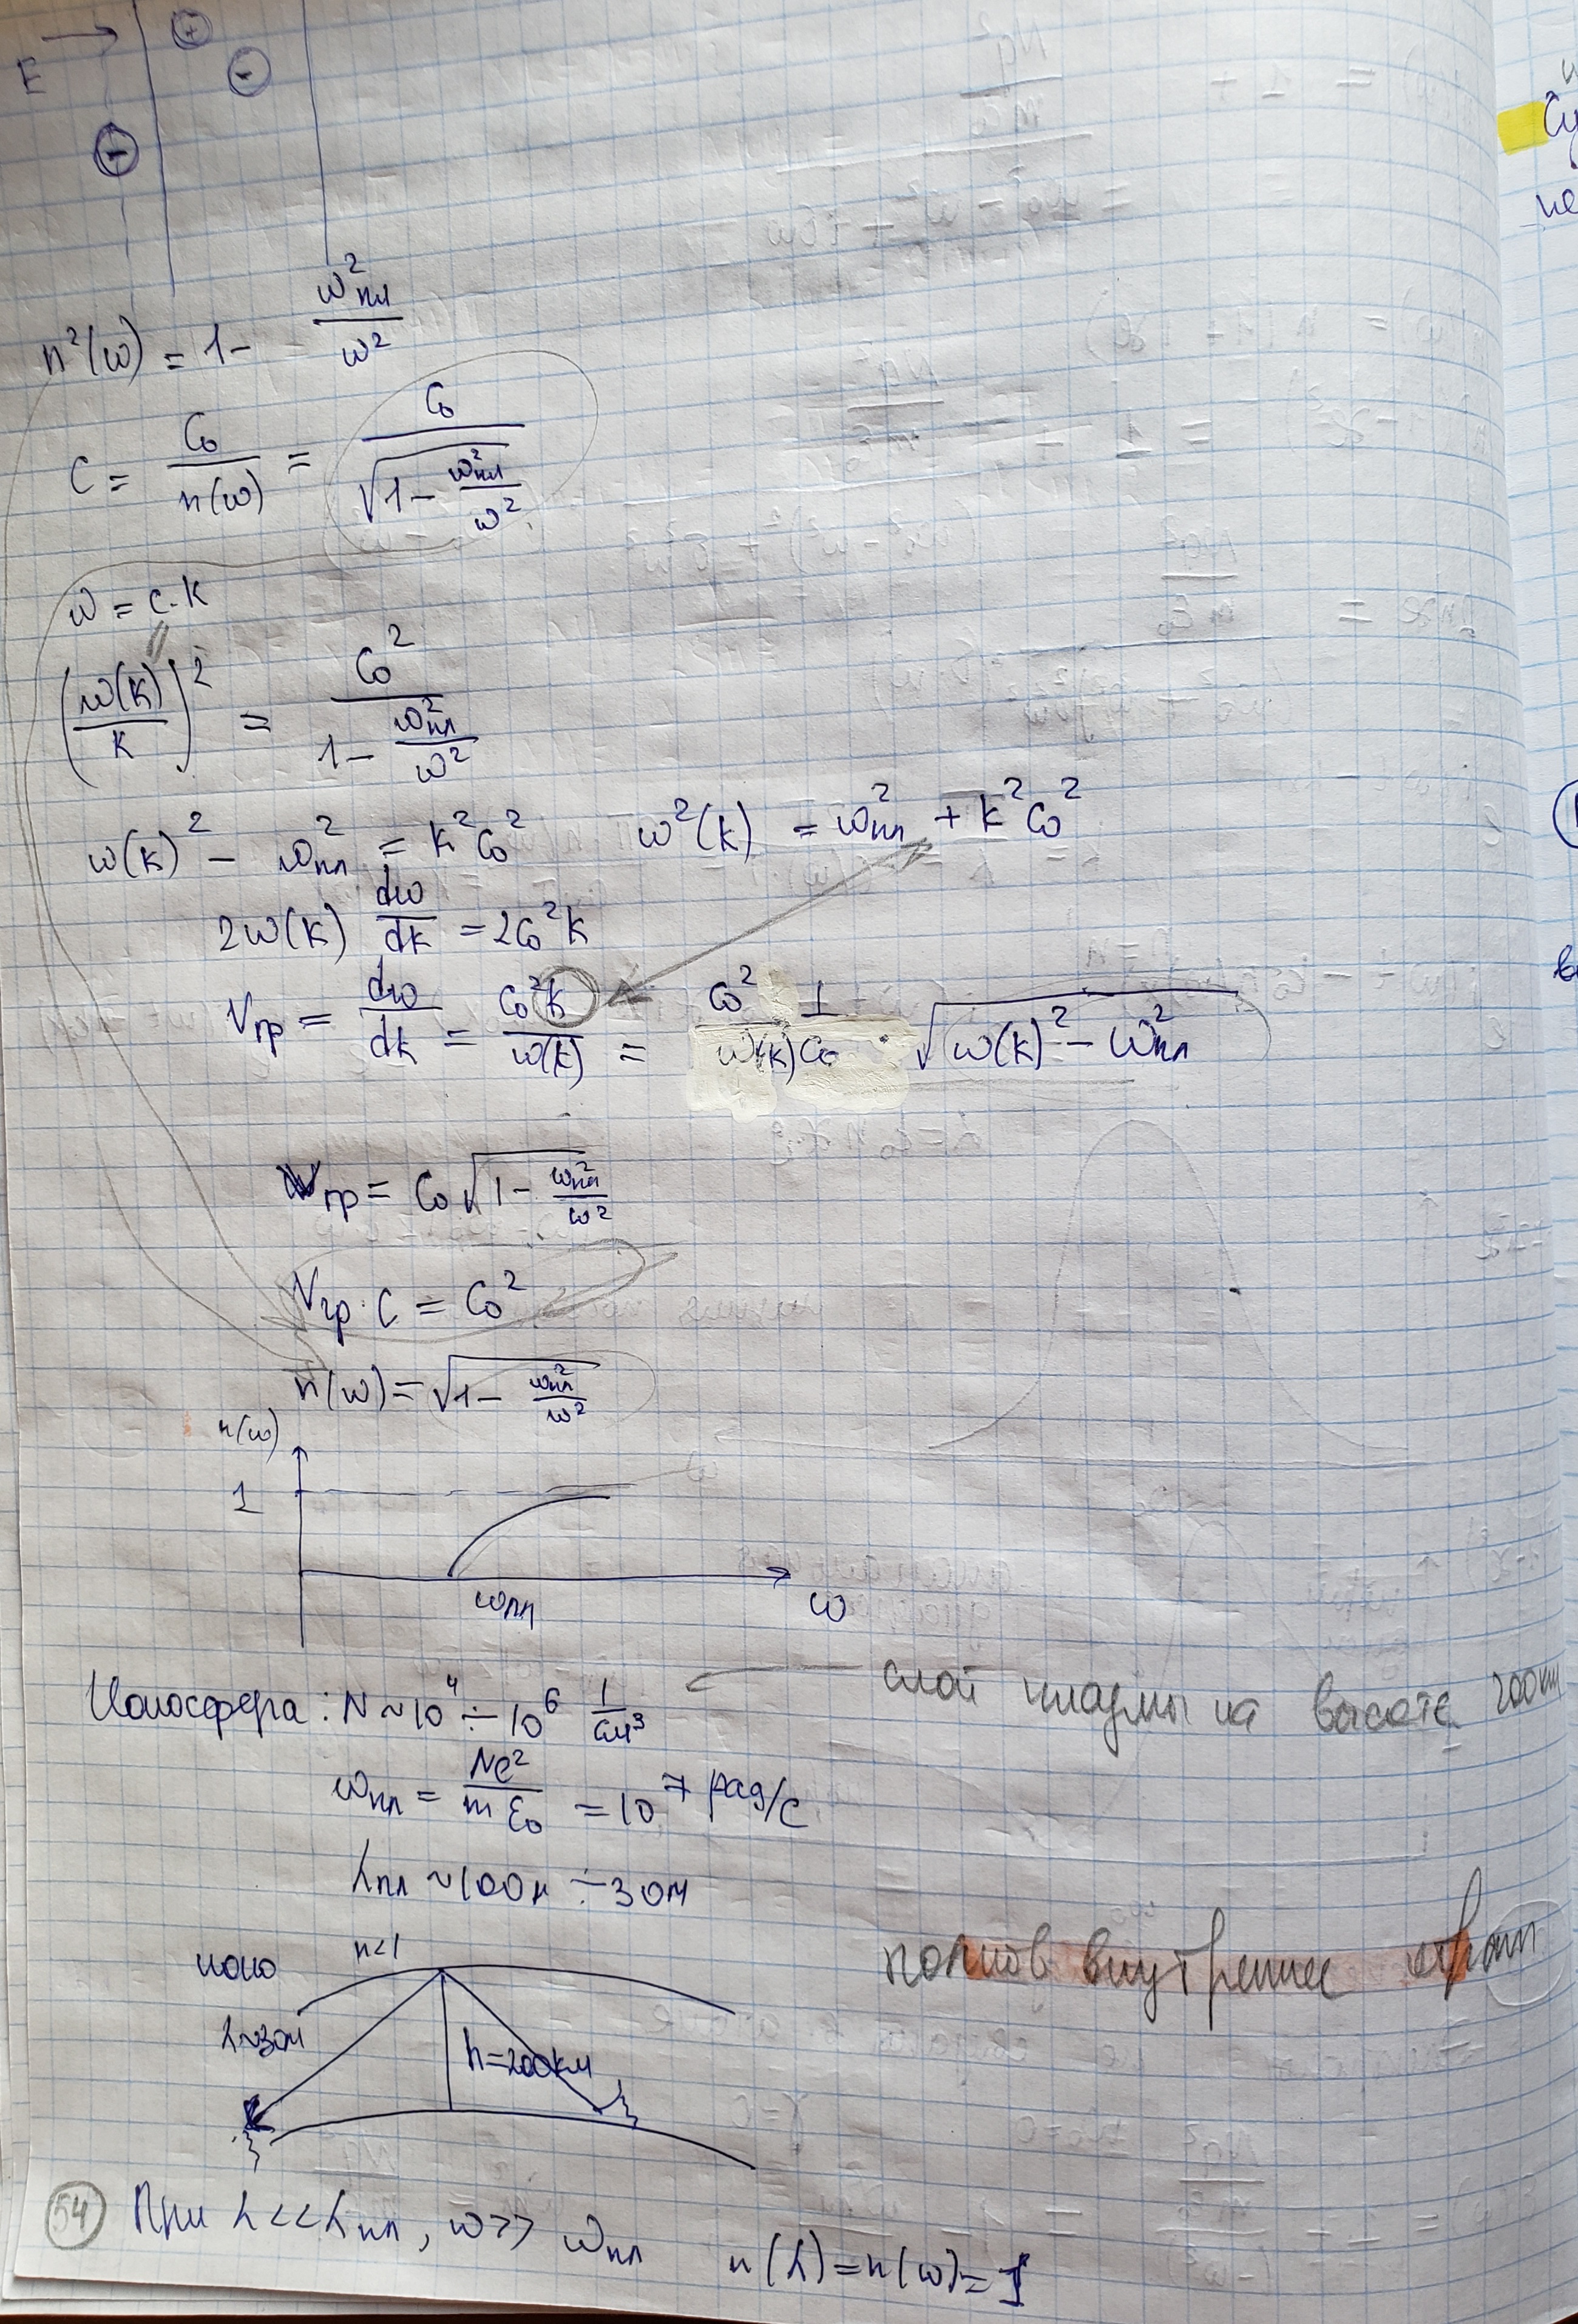 E
+
-
+
n²(ω) = 1 - ω²пл / ω²
C = C₀ / n(ω) = C₀ / √(1 - ω²пл / ω²)
ω = c·k
(ω(k) / k)² = C₀² / (1 - ω²пл / ω²)
ω(k)² - ω²пл = k²C₀² ω²(k) = ω²пл + k²C₀²
2ω(k) dω/dk = 2C₀²k
Vгр = dω/dk = C₀²k / ω(k) = C₀² / ω(k) · 1 / C₀ · √(ω(k)² - ω²пл)
Vгр = C₀ √(1 - ω²пл / ω²)
Vгр · C = C₀²
n(ω) = √(1 - ω²пл / ω²)
n(ω)
1
ωпл ω
Ионосфера: N ~ 10⁴ ÷ 10⁶ 1/см³ слой плазмы на высоте 200км
ωпл = Ne² / mε₀ = 10⁷ рад/с
λпл ~ 100м ÷ 30м
ионо n<1
полное внутреннее отраж
λ~30м
h=200км
54 При λ << λпл, ω >> ωпл n(λ) = n(ω) = 1